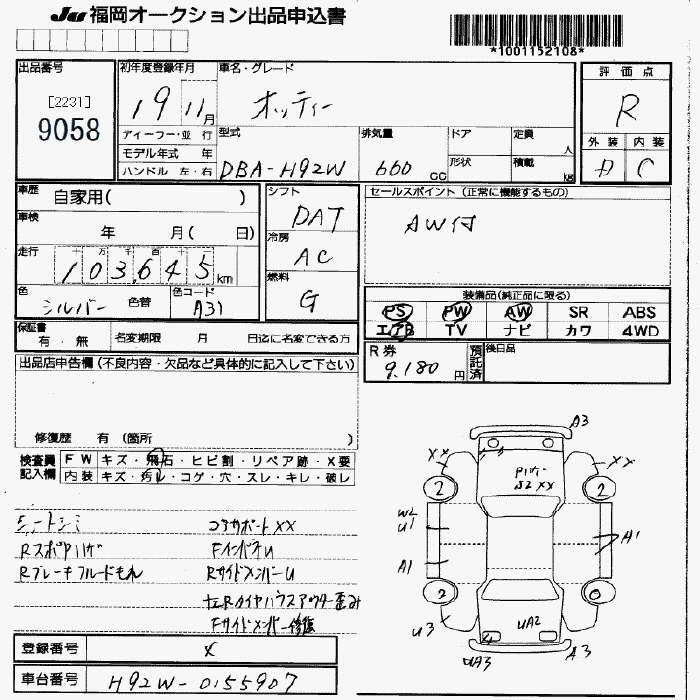 JU 福岡オークション出品申込書
*1001152108*
出品番号
[2231]
9058
初年度登録年月
19 11月
車名・グレード
オッティー
評価点
R
外装 内装
D C
ディーラー・並行
モデル年式 年
ハンドル 左・右
型式
DBA-H92W
排気量
660 CC
ドア
形状
定員 人
積載 kg
車歴 自家用( )
車検 年 月( 日)
走行
十 万 千 百 十 一
103,645 km
色
シルバー 色替
色コード
A31
シフト
DAT
冷房
AC
燃料
G
セールスポイント(正常に機能するもの)
AW付
装備品(純正品に限る)
PS PW AW SR ABS
エアB TV ナビ カワ 4WD
保証書
有・無
名変期限 月 日迄に名変できる方
R券
9,180 円
預託済
後日品
出品店申告欄(不良内容・欠品など具体的に記入して下さい)
修復歴 有 (箇所 )
検査員記入欄
FW キズ・飛石・ヒビ割・リペア跡・X要
内装 キズ・汚レ・コゲ・穴・スレ・キレ・破レ
シートシミ
コアサポートXX
FインパネU
Rブレーキフルードもれ
RサイドメンバーU
左Rタイヤハウスアウター歪み
Fサイドメンバー修復
A3
XX
XX
2
2
W2
U1
A1
A1
2
U3
UA2
UA3
A3
登録番号
X
車台番号
H92W-0155907